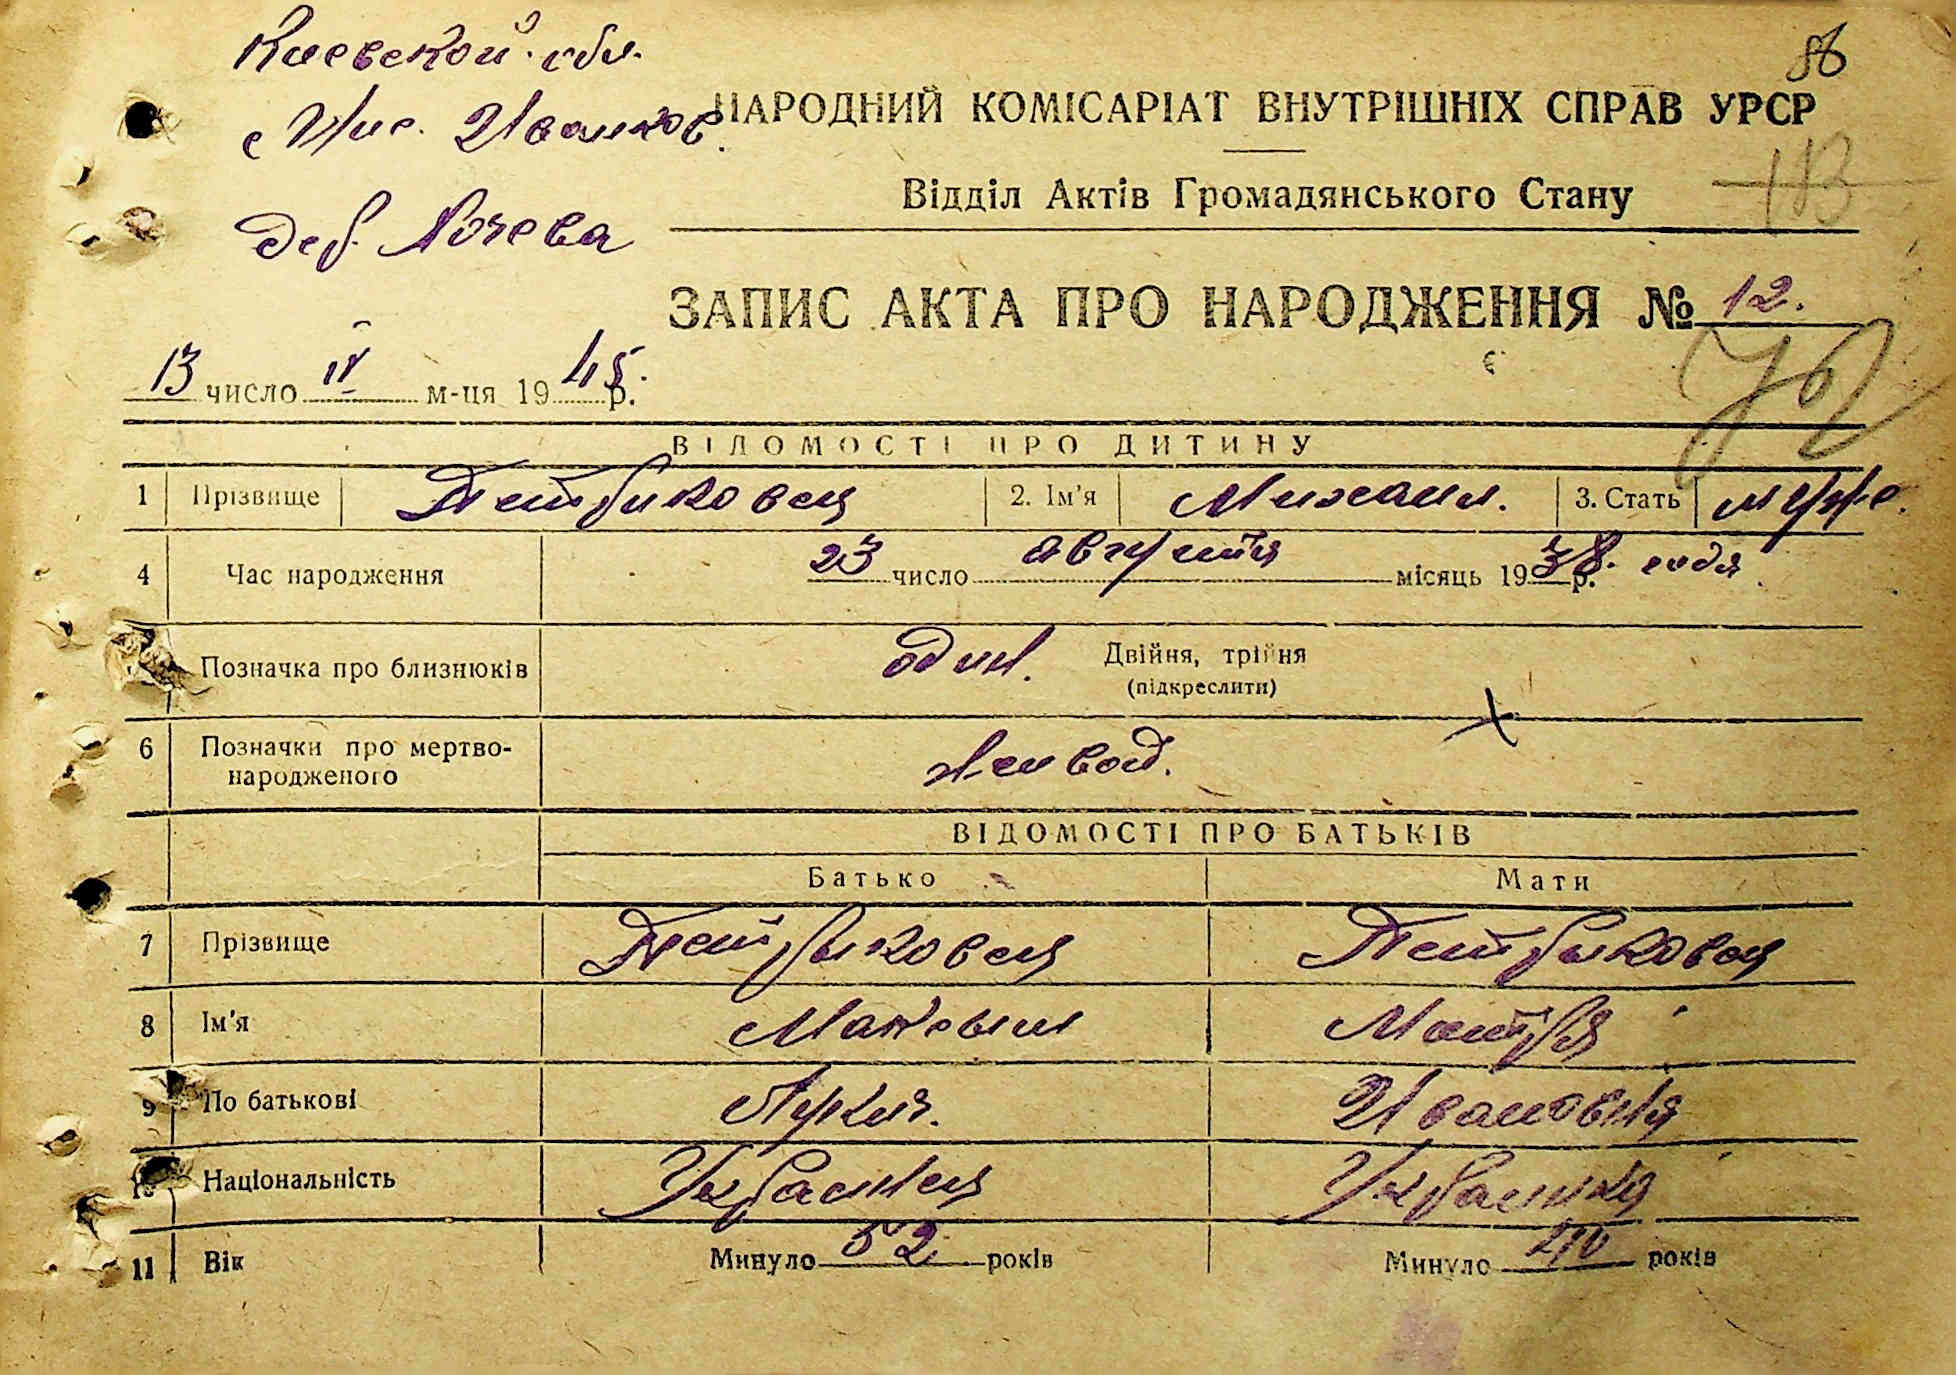 Киевской обл.
86
Иванков.
НАРОДНИЙ КОМІСАРІАТ ВНУТРІШНІХ СПРАВ УРСР
113
Відділ Актів Громадянського Стану
ЗАПИС АКТА ПРО НАРОДЖЕННЯ № 12.
13 число IV м-ця 1945. р.
ВІДОМОСТІ ПРО ДИТИНУ
1 Прізвище Петриковец 2. Ім'я Михаил. 3. Стать муж.
4 Час народження 23 число августа місяць 1938. р. года
Позначка про близнюків один. Двійня, трійня
(підкреслити)
6 Позначки про мертво-
народженого живой.
ВІДОМОСТІ ПРО БАТЬКІВ
Батько Мати
7 Прізвище Петриковец Петриковец
8 Ім'я
9 По батькові Лукич. Ивановня
10 Національність Украинец Украинка
11 Вік Минуло 52 років Минуло 40 років